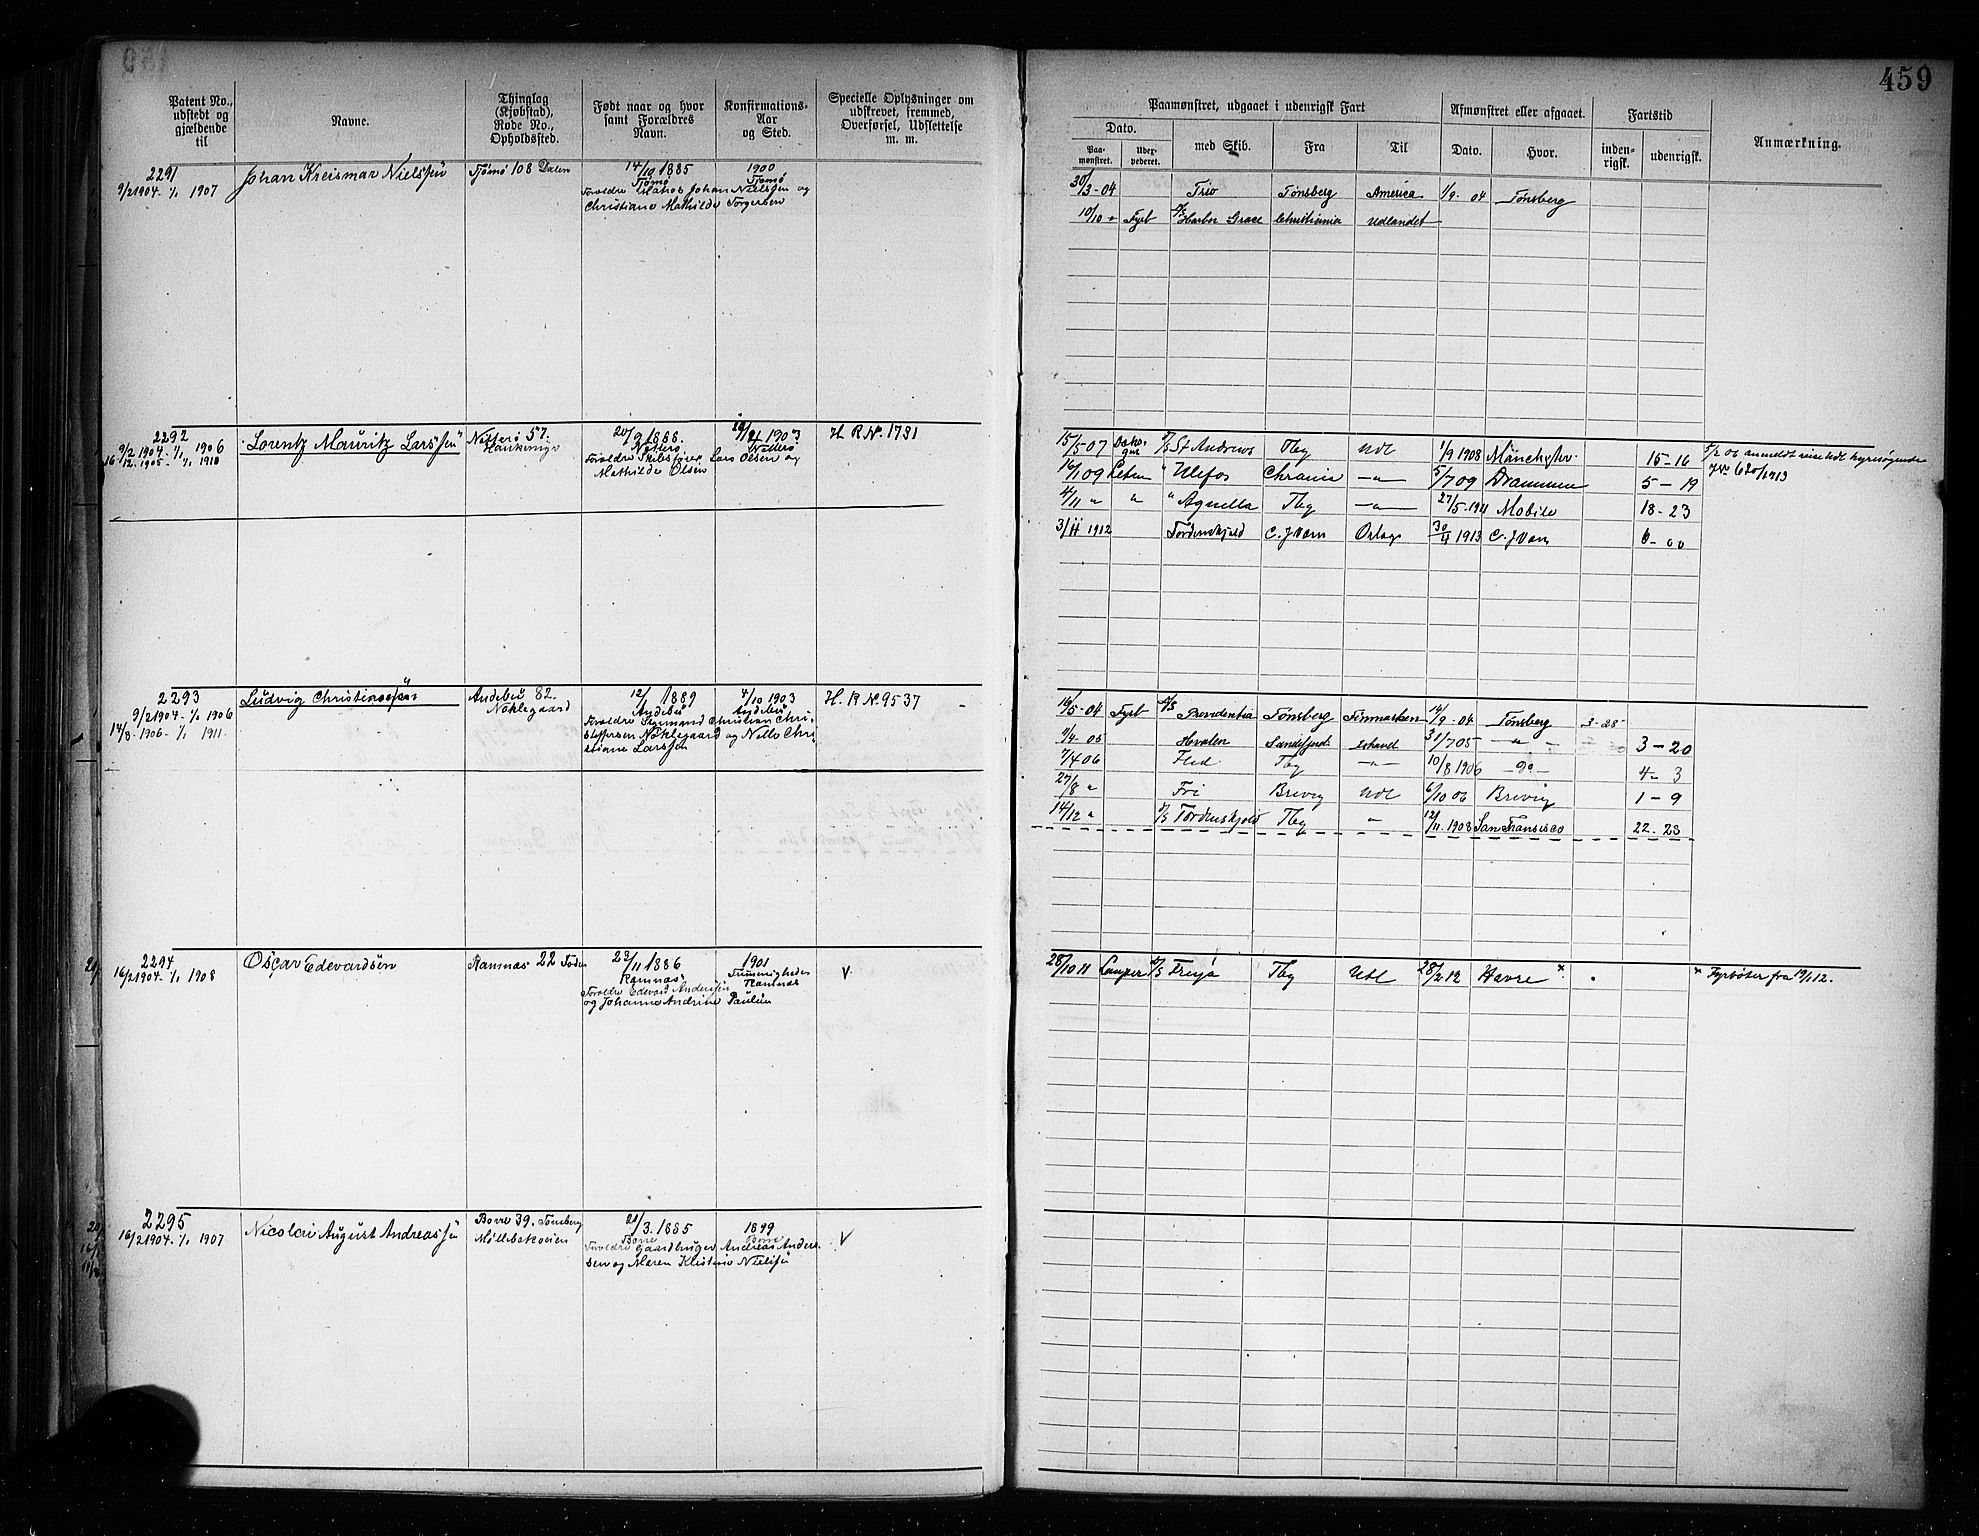 459
Patent No., udstedt og gjældende til
Navne.
Thinglag (Kjøbstad), Rode No., Opholdssted.
Født naar og hvor samt Forældres Navn.
Konfirmations- Aar og Sted.
Specielle Oplysninger om udskrevet, fremmed, Overførsel, Udslettelse m. m.
Paamønstret, udgaaet i udenrigsk Fart
Afmønstret eller afgaaet.
Fartstid
Anmærkning.
Dato.
med Skib.
Fra
Til
Dato.
Hvor.
inden- rigsk.
udenrigsk.
Paa- mønstret.
2291
9/2 1904. 1/1 1907
Johan Kreismar Nielssen
Tjømø 108 Dalen
14/10 1885
Tjømø
Forældre Johan Nielssen og
Christiane Mathilde Torgersen
1900
Tjømø
30/3-04 Trio Tønsberg America 1/9-04 Tønsberg
10/10 " Fyrb Harbor Grace Christiania Udlandet
2292
9/2 1904. 1/1 1906
16/12.1905- 1/1 1910
Lorentz Mauritz Larssen
Nøtterø 57.
20/9 1888.
Nøtterø
Forældre Skibsfører Lars Olsen og
Mathilde Olsen
1903
Nøtterø
H. R No. 1731
15/5-07 D/S St Andrews Tbg Udl 1/9 1908 Manchester 15-16
5/2 06 anmeldt reise hdl hyresøgende
16/1 09 Letm " Ulefos Chrania -"- 5/7 09 Drammen 5-19
4/11 " " " Agnella Tbg -"- 27/5-1911 Mobile 18-23
3/11 1912 Tordenskjold C. J Vern Orlogs 30/4 1913 C. J Vern 6-00
2293
9/2 1904. 1/1 1906
14/3-1906- 1/1 1911.
Ludvig Christianssen
Andebu 82.
Nøklegaard
12/1 1889
Andebu
Forældre Sigmund Christian Chri-
stoffersen Nøklegaard og Nille Chri-
stiane Larssen
4/10 1903
Andebu
H. R No. 9537
16/5-04 Fyrb D/S Providentia Tønsberg Finmarken 14/9-04 Tønsberg 3-28
1/4-05 Hvalen Sandefjord Ishavet 31/7 05 -"- 3-20
7/4 06 Fled Tbg -"- 10/8 1906 -do- 4-3
27/8 " Fri Brevig Udl 6/10 06 Brevig 1-9
14/12 " D/S Tordenskjold Tbg " 12/11.1908 San Fransisco 22-28
2294
16/2 1904. 1/1 1908
Oscar Edevardsen
Ramnæs 22 Foden
23/11 1886
Ramnæs
Forældre Edevard Anderssen
og Johanne Andrine Paulsen
1901
Ramnæs
V
28/10 11 Lamper D/S Freya Tbg Udl 28/2 12 Havre x
x Fyrbøter fra 19/1 12.
2295
16/2 1904. 1/1 1907
Nicolai August Andreassen
Borre 39. Tønsberg
Møllebakveien
21/3. 1885
Borre
Forældre Gaardbruger Andreas Anders-
sen og Maren Kristine Nielssen
1899
Borre
V